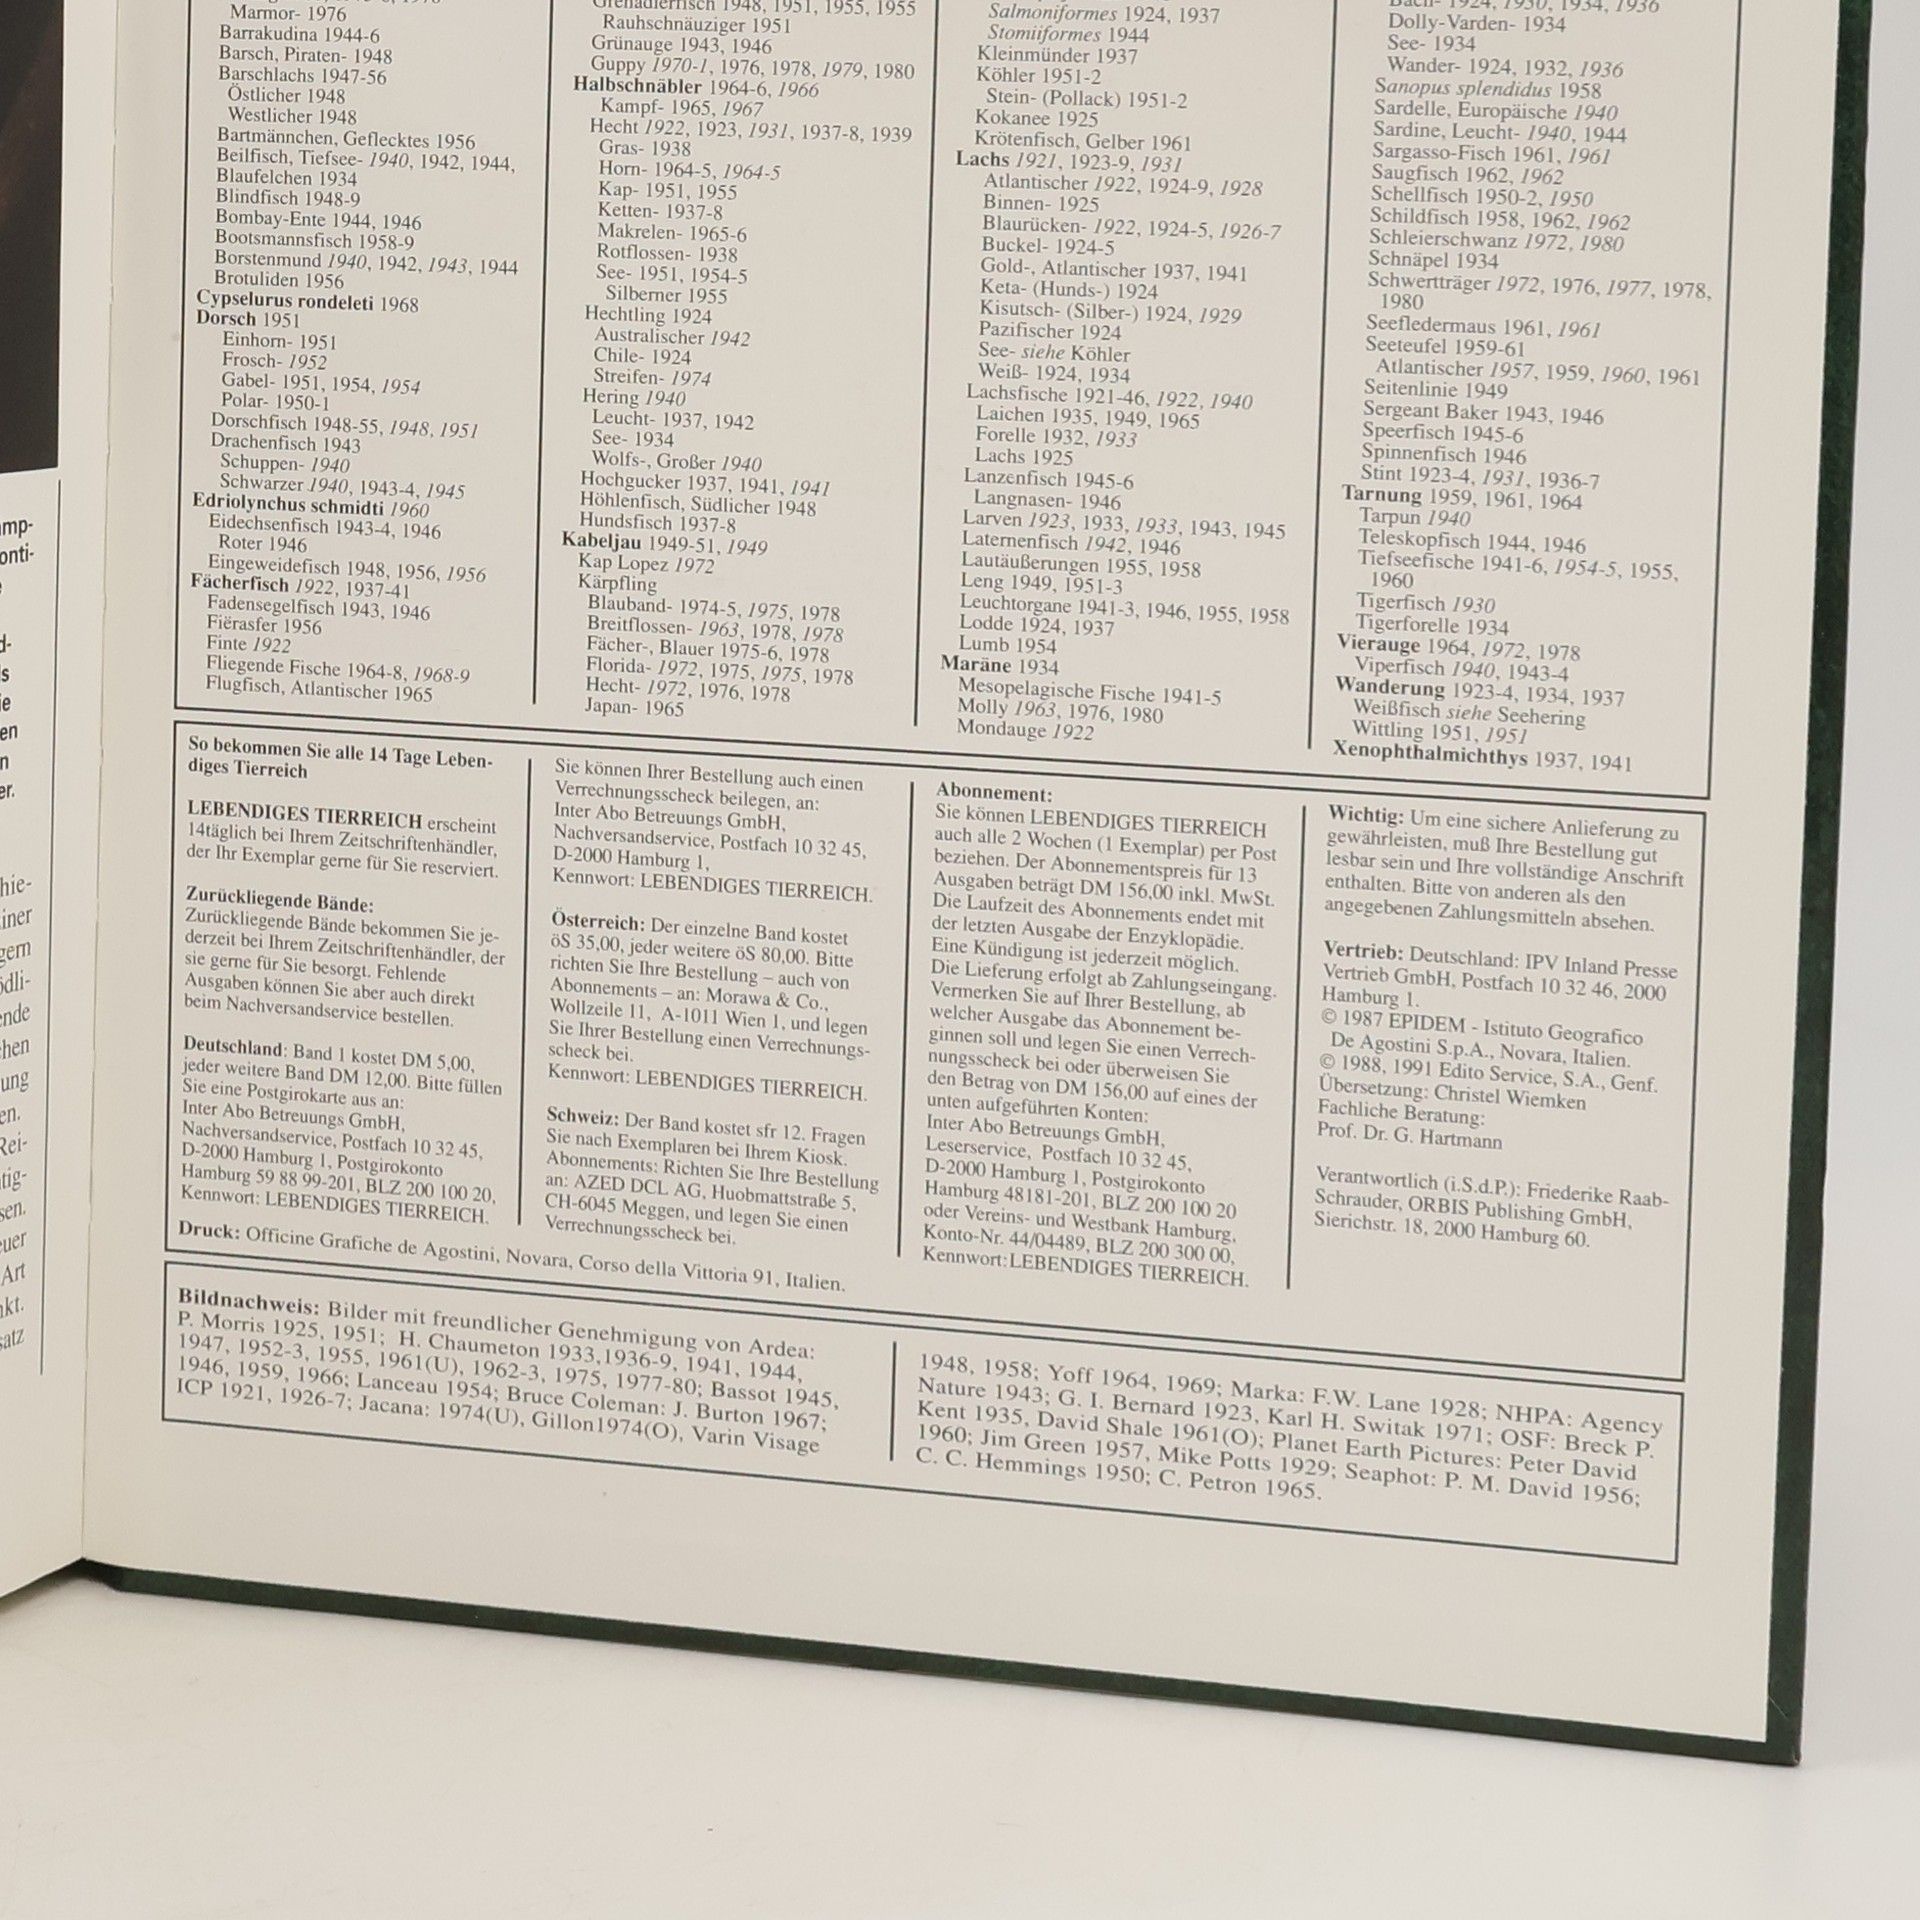 Marmor- 1976
Barrakudina 1944-6
Barsch, Piraten- 1948
Barschlachs 1947-56
Östlicher 1948
Westlicher 1948
Bartmännchen, Geflecktes 1956
Beilfisch, Tiefsee- 1940, 1942, 1944,
Blaufelchen 1934
Blindfisch 1948-9
Bombay-Ente 1944, 1946
Bootsmannsfisch 1958-9
Borstenmund 1940, 1942, 1943, 1944
Brotuliden 1956
Cypselurus rondeleti 1968
Dorsch 1951
Einhorn- 1951
Frosch- 1952
Gabel- 1951, 1954, 1954
Polar- 1950-1
Dorschfisch 1948-55, 1948, 1951
Drachenfisch 1943
Schuppen- 1940
Schwarzer 1940, 1943-4, 1945
Edriolynchus schmidti 1960
Eidechsenfisch 1943-4, 1946
Roter 1946
Eingeweidefisch 1948, 1956, 1956
Fächerfisch 1922, 1937-41
Fadensegelfisch 1943, 1946
Fiërasfer 1956
Finte 1922
Fliegende Fische 1964-8, 1968-9
Flugfisch, Atlantischer 1965
Grenadierfisch 1948, 1951, 1955, 1955
Rauhschnäuziger 1951
Grünauge 1943, 1946
Guppy 1970-1, 1976, 1978, 1979, 1980
Halbschnäbler 1964-6, 1966
Kampf- 1965, 1967
Hecht 1922, 1923, 1931, 1937-8, 1939
Gras- 1938
Horn- 1964-5, 1964-5
Kap- 1951, 1955
Ketten- 1937-8
Makrelen- 1965-6
Rotflossen- 1938
See- 1951, 1954-5
Silberner 1955
Hechtling 1924
Australischer 1942
Chile- 1924
Streifen- 1974
Hering 1940
Leucht- 1937, 1942
See- 1934
Wolfs-, Großer 1940
Hochgucker 1937, 1941, 1941
Höhlenfisch, Südlicher 1948
Hundsfisch 1937-8
Kabeljau 1949-51, 1949
Kap Lopez 1972
Kärpfling
Blauband- 1974-5, 1975, 1978
Breitflossen- 1963, 1978, 1978
Fächer-, Blauer 1975-6, 1978
Florida- 1972, 1975, 1975, 1978
Hecht- 1972, 1976, 1978
Japan- 1965
Salmoniformes 1924, 1937
Stomiiformes 1944
Kleinmünder 1937
Köhler 1951-2
Stein- (Pollack) 1951-2
Kokanee 1925
Krötenfisch, Gelber 1961
Lachs 1921, 1923-9, 1931
Atlantischer 1922, 1924-9, 1928
Binnen- 1925
Blaurücken- 1922, 1924-5, 1926-7
Buckel- 1924-5
Gold-, Atlantischer 1937, 1941
Keta- (Hunds-) 1924
Kisutsch- (Silber-) 1924, 1929
Pazifischer 1924
See- siehe Köhler
Weiß- 1924, 1934
Lachsfische 1921-46, 1922, 1940
Laichen 1935, 1949, 1965
Forelle 1932, 1933
Lachs 1925
Lanzenfisch 1945-6
Langnasen- 1946
Larven 1923, 1933, 1933, 1943, 1945
Laternenfisch 1942, 1946
Lautäußerungen 1955, 1958
Leng 1949, 1951-3
Leuchtorgane 1941-3, 1946, 1955, 1958
Lodde 1924, 1937
Lumb 1954
Maräne 1934
Mesopelagische Fische 1941-5
Molly 1963, 1976, 1980
Mondauge 1922
Bach- 1924, 1930, 1934, 1936
Dolly-Varden- 1934
See- 1934
Wander- 1924, 1932, 1936
Sanopus splendidus 1958
Sardelle, Europäische 1940
Sardine, Leucht- 1940, 1944
Sargasso-Fisch 1961, 1961
Saugfisch 1962, 1962
Schellfisch 1950-2, 1950
Schildfisch 1958, 1962, 1962
Schleierschwanz 1972, 1980
Schnäpel 1934
Schwertträger 1972, 1976, 1977, 1978,
1980
Seefledermaus 1961, 1961
Seeteufel 1959-61
Atlantischer 1957, 1959, 1960, 1961
Seitenlinie 1949
Sergeant Baker 1943, 1946
Speerfisch 1945-6
Spinnenfisch 1946
Stint 1923-4, 1931, 1936-7
Tarnung 1959, 1961, 1964
Tarpun 1940
Teleskopfisch 1944, 1946
Tiefseefische 1941-6, 1954-5, 1955,
1960
Tigerfisch 1930
Tigerforelle 1934
Vierauge 1964, 1972, 1978
Viperfisch 1940, 1943-4
Wanderung 1923-4, 1934, 1937
Weißfisch siehe Seehering
Wittling 1951, 1951
Xenophthalmichthys 1937, 1941
So bekommen Sie alle 14 Tage Leben-
diges Tierreich
LEBENDIGES TIERREICH erscheint
14täglich bei Ihrem Zeitschriftenhändler,
der Ihr Exemplar gerne für Sie reserviert.
Zurückliegende Bände:
Zurückliegende Bände bekommen Sie je-
derzeit bei Ihrem Zeitschriftenhändler, der
sie gerne für Sie besorgt. Fehlende
Ausgaben können Sie aber auch direkt
beim Nachversandservice bestellen.
Deutschland: Band 1 kostet DM 5,00,
jeder weitere Band DM 12,00. Bitte füllen
Sie eine Postgirokarte aus an:
Inter Abo Betreuungs GmbH,
Nachversandservice, Postfach 10 32 45,
D-2000 Hamburg 1, Postgirokonto
Hamburg 59 88 99-201, BLZ 200 100 20,
Kennwort: LEBENDIGES TIERREICH.
Sie können Ihrer Bestellung auch einen
Verrechnungsscheck beilegen, an:
Inter Abo Betreuungs GmbH,
Nachversandservice, Postfach 10 32 45,
D-2000 Hamburg 1,
Kennwort: LEBENDIGES TIERREICH.
Österreich: Der einzelne Band kostet
öS 35,00, jeder weitere öS 80,00. Bitte
richten Sie Ihre Bestellung – auch von
Abonnements – an: Morawa & Co.,
Wollzeile 11, A-1011 Wien 1, und legen
Sie Ihrer Bestellung einen Verrechnungs-
scheck bei.
Kennwort: LEBENDIGES TIERREICH.
Schweiz: Der Band kostet sfr 12. Fragen
Sie nach Exemplaren bei Ihrem Kiosk.
Abonnements: Richten Sie Ihre Bestellung
an: AZED DCL AG, Huobmattstraße 5,
CH-6045 Meggen, und legen Sie einen
Verrechnungsscheck bei.
Druck: Officine Grafiche de Agostini, Novara, Corso della Vittoria 91, Italien.
Abonnement:
Sie können LEBENDIGES TIERREICH
auch alle 2 Wochen (1 Exemplar) per Post
beziehen. Der Abonnementspreis für 13
Ausgaben beträgt DM 156,00 inkl. MwSt.
Die Laufzeit des Abonnements endet mit
der letzten Ausgabe der Enzyklopädie.
Eine Kündigung ist jederzeit möglich.
Die Lieferung erfolgt ab Zahlungseingang.
Vermerken Sie auf Ihrer Bestellung, ab
welcher Ausgabe das Abonnement be-
ginnen soll und legen Sie einen Verrech-
nungsscheck bei oder überweisen Sie
den Betrag von DM 156,00 auf eines der
unten aufgeführten Konten:
Inter Abo Betreuungs GmbH,
Leserservice, Postfach 10 32 45,
D-2000 Hamburg 1, Postgirokonto
Hamburg 48181-201, BLZ 200 100 20
oder Vereins- und Westbank Hamburg,
Konto-Nr. 44/04489, BLZ 200 300 00,
Kennwort: LEBENDIGES TIERREICH.
Wichtig: Um eine sichere Anlieferung zu
gewährleisten, muß Ihre Bestellung gut
lesbar sein und Ihre vollständige Anschrift
enthalten. Bitte von anderen als den
angegebenen Zahlungsmitteln absehen.
Vertrieb: Deutschland: IPV Inland Presse
Vertrieb GmbH, Postfach 10 32 46, 2000
Hamburg 1.
© 1987 EPIDEM - Istituto Geografico
De Agostini S.p.A., Novara, Italien.
© 1988, 1991 Edito Service, S.A., Genf.
Übersetzung: Christel Wiemken
Fachliche Beratung:
Prof. Dr. G. Hartmann
Verantwortlich (i.S.d.P.): Friederike Raab-
Schrauder, ORBIS Publishing GmbH,
Sierichstr. 18, 2000 Hamburg 60.
Bildnachweis: Bilder mit freundlicher Genehmigung von Ardea:
P. Morris 1925, 1951; H. Chaumeton 1933,1936-9, 1941, 1944,
1947, 1952-3, 1955, 1961(U), 1962-3, 1975, 1977-80; Bassot 1945,
1946, 1959, 1966; Lanceau 1954; Bruce Coleman: J. Burton 1967;
ICP 1921, 1926-7; Jacana: 1974(U), Gillon1974(O), Varin Visage
1948, 1958; Yoff 1964, 1969; Marka: F.W. Lane 1928; NHPA: Agency
Nature 1943; G. I. Bernard 1923, Karl H. Switak 1971; OSF: Breck P.
Kent 1935, David Shale 1961(O); Planet Earth Pictures: Peter David
1960; Jim Green 1957, Mike Potts 1929; Seaphot: P. M. David 1956;
C. C. Hemmings 1950; C. Petron 1965.